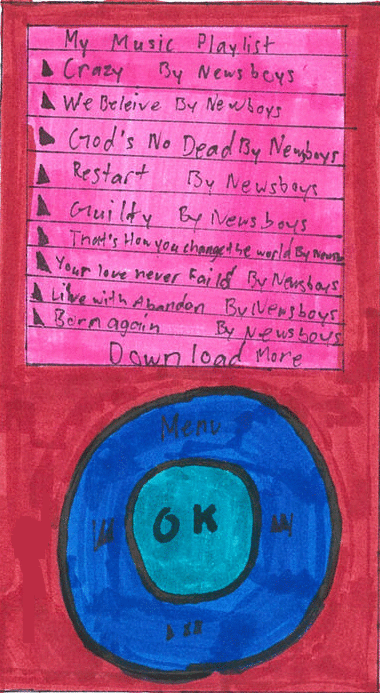 My Music Playlist
Crazy By Newsboys
We Beleive By Newboys
God's No Dead By Newsboys
Restart By Newsboys
Guilty By Newsboys
That's How you change the world By Newsb
Your love never faild By Newsboys
Live with Abandon By Newsboys
Born again By Newsboys
Download More
Menu
OK